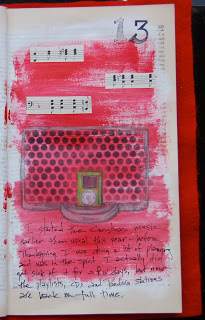 13
I started the Christmas music
earlier than usual this year - before
Thanksgiving. I was doing a lot of planning
and was in the spirit. I actually did
get sick of it for a few days, but now
the playlists, CDs and Pandora stations
are back on full time.